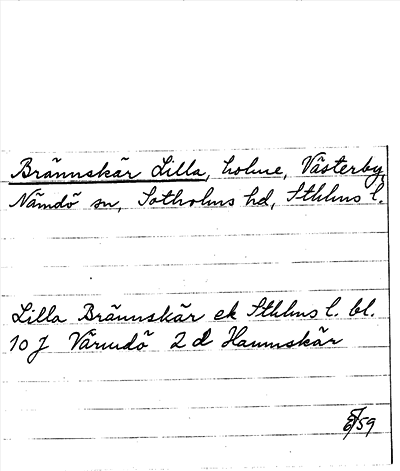 Brännskär Lilla, holme, Västerby,
Nämdö sn, Sotholms hd, Sthlms l.
Lilla Brännskär ek Sthlms l. bl.
10 J Värmdö 2 d Hamnskär
59